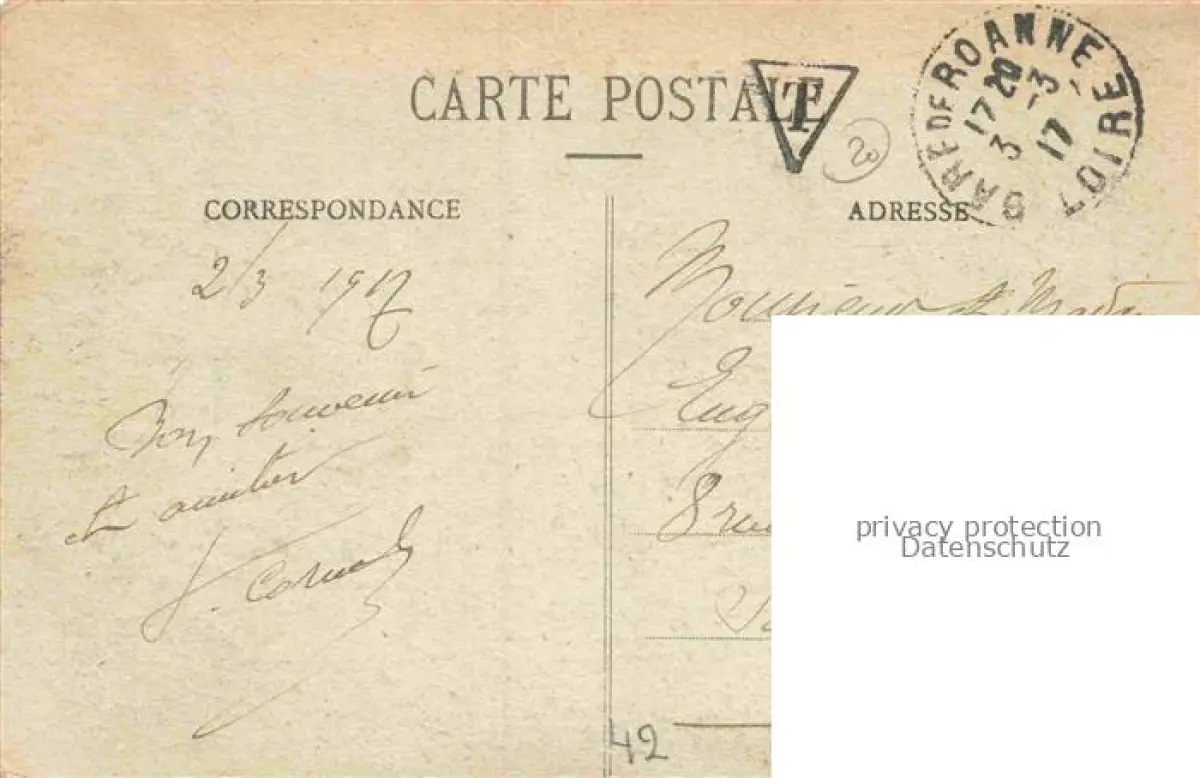 CARTE POSTALE
T
20
GARE DE ROANNE LOIRE
17 20
3 - 3
17
CORRESPONDANCE
ADRESSE
2/3 1917
Bon souvenir
et amitiés
Monsieur et Mada
Eug
8 rue
privacy protection
Datenschutz
42